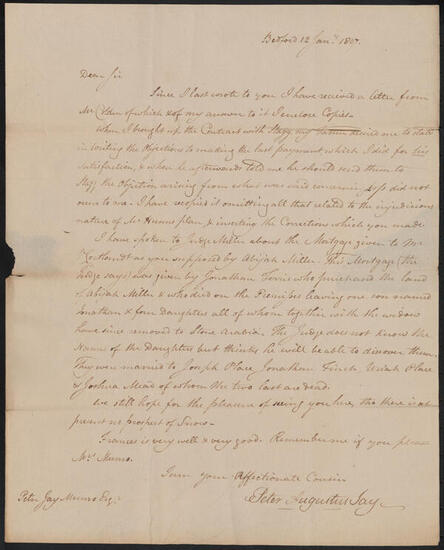 Bedford 12 Jany. 1807.
Dear Sir
Since I last wrote to you I have received a letter from
Mr of which & of my answer to it I enclose Copies—
When I bought up the Contract with my desired me to state
in writing the Objections to making the last payment which I did for his
satisfaction, & when he afterwards told me he should send them to
the Objection arising from what was said concerning did not
occur to me. I have recopied it omitting all that related to the injudicious
nature of Mr Hunns plan, & inserting the Corrections which you made
I have spoken to Judge Miller about the Mortgage given to Mr
as you supposed by Abijah Miller. This Mortgage (the
Judge says) was given by Jonathan Ferris who purchased the land
of Abijah Miller & who died on the Premises leaving one son named
Jonathan & four Daughters all of whom together with the widow
have since removed to Stone Arabia. The Judge does not know the
Names of the Daughters but thinks he will be able to discover them
They were married to Joseph Place Jonathan Finch, Uriah Place
& Joshua Mead of whom the two last are dead.
We still hope for the pleasure of seeing you here, tho there is not
present no prospect of Snow—
Frances is very well & very good. Remember me if you please
Mrs. Munro.
I am your Affectionate Cousin
Peter Augustus Jay
Peter Jay Munro Esqr.